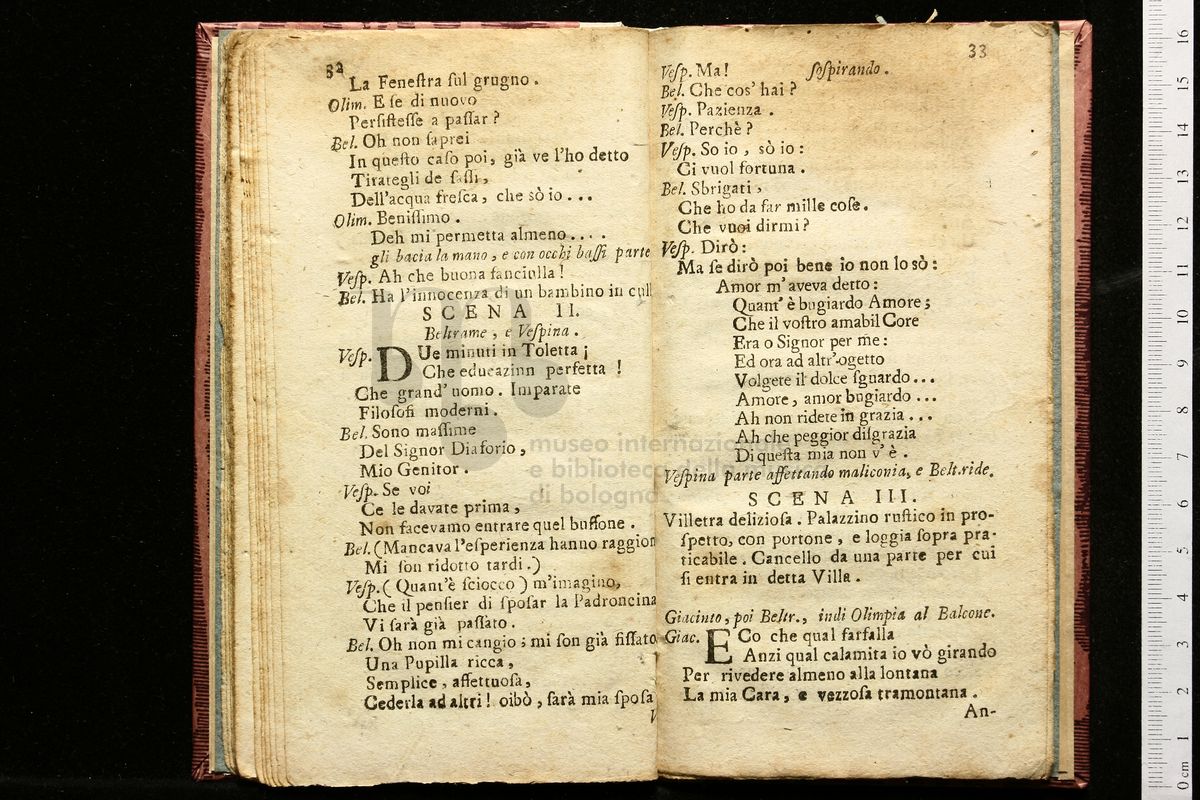 32
La Feneſtra ſul grugno.
Olim. E ſe di nuovo
Perſiſteſſe a paſſar?
Bel. Oh non ſaprei
In queſto caſo poi, già ve l'ho detto
Tirategli de ſaſſi,
Dell'acqua freſca, che sò io...
Olim. Beniſſimo.
Deh mi permetta almeno....
gli bacia la mano, e con occhi baſſi parte
Veſp. Ah che buona fanciulla!
Bel. Ha l'innocenza di un bambino in cull
SCENA II.
Beltrame, e Veſpina.
Veſp. DUe minuti in Toletta;
Che educazinn perfetta!
Che grand' uomo. Imparate
Filoſofi moderni.
Bel. Sono maſſime
Del Signor Diaforio,
Mio Genitor.
Veſp. Se voi
Ce le davate prima,
Non facevamo entrare quel buffone.
Bel. (Mancava l'eſperienza hanno raggion
Mi ſon ridotto tardi.)
Veſp. (Quant'è ſciocco) m'imagino,
Che il penſier di ſpoſar la Padroncina
Vi ſarà già paſſato.
Bel. Oh non mi cangio; mi ſon già fiſſato
Una Pupilla ricca,
Semplice, affettuoſa,
Cederla ad altri! oibò, ſarà mia ſpoſa
V
33
Veſp. Ma! ſoſpirando.
Bel. Che cos' hai?
Veſp. Pazienza.
Bel. Perchè?
Veſp. So io, sò io:
Ci vuol fortuna.
Bel. Sbrigati,
Che ho da far mille coſe.
Che vuoi dirmi?
Veſp. Dirò:
Ma ſe dirò poi bene io non lo sò:
Amor m'aveva detto:
Quant' è bugiardo Amore;
Che il voſtro amabil Core
Era o Signor per me:
Ed ora ad altr' ogetto
Volgete il dolce ſguardo...
Amore, amor bugiardo...
Ah non ridete in grazia...
Ah che peggior diſgrazia
Di queſta mia non v'è.
Veſpina parte affettando maliconia, e Belt. ride.
SCENA III.
Villetra delizioſa. Palazzino ruſtico in pro-
ſpetto, con portone, e loggia ſopra pra-
ticabile. Cancello da una parte per cui
ſi entra in detta Villa.
Giacinto, poi Beltr., indi Olimpia al Balcone.
Giac. ECo che qual farfalla
Anzi qual calamita io vò girando
Per rivedere almeno alla lontana
La mia Cara, e vezzoſa tramontana.
An-
museo internazionale
e biblioteca della musica
di bologna
0 cm 1 2 3 4 5 6 7 8 9 10 11 12 13 14 15 16